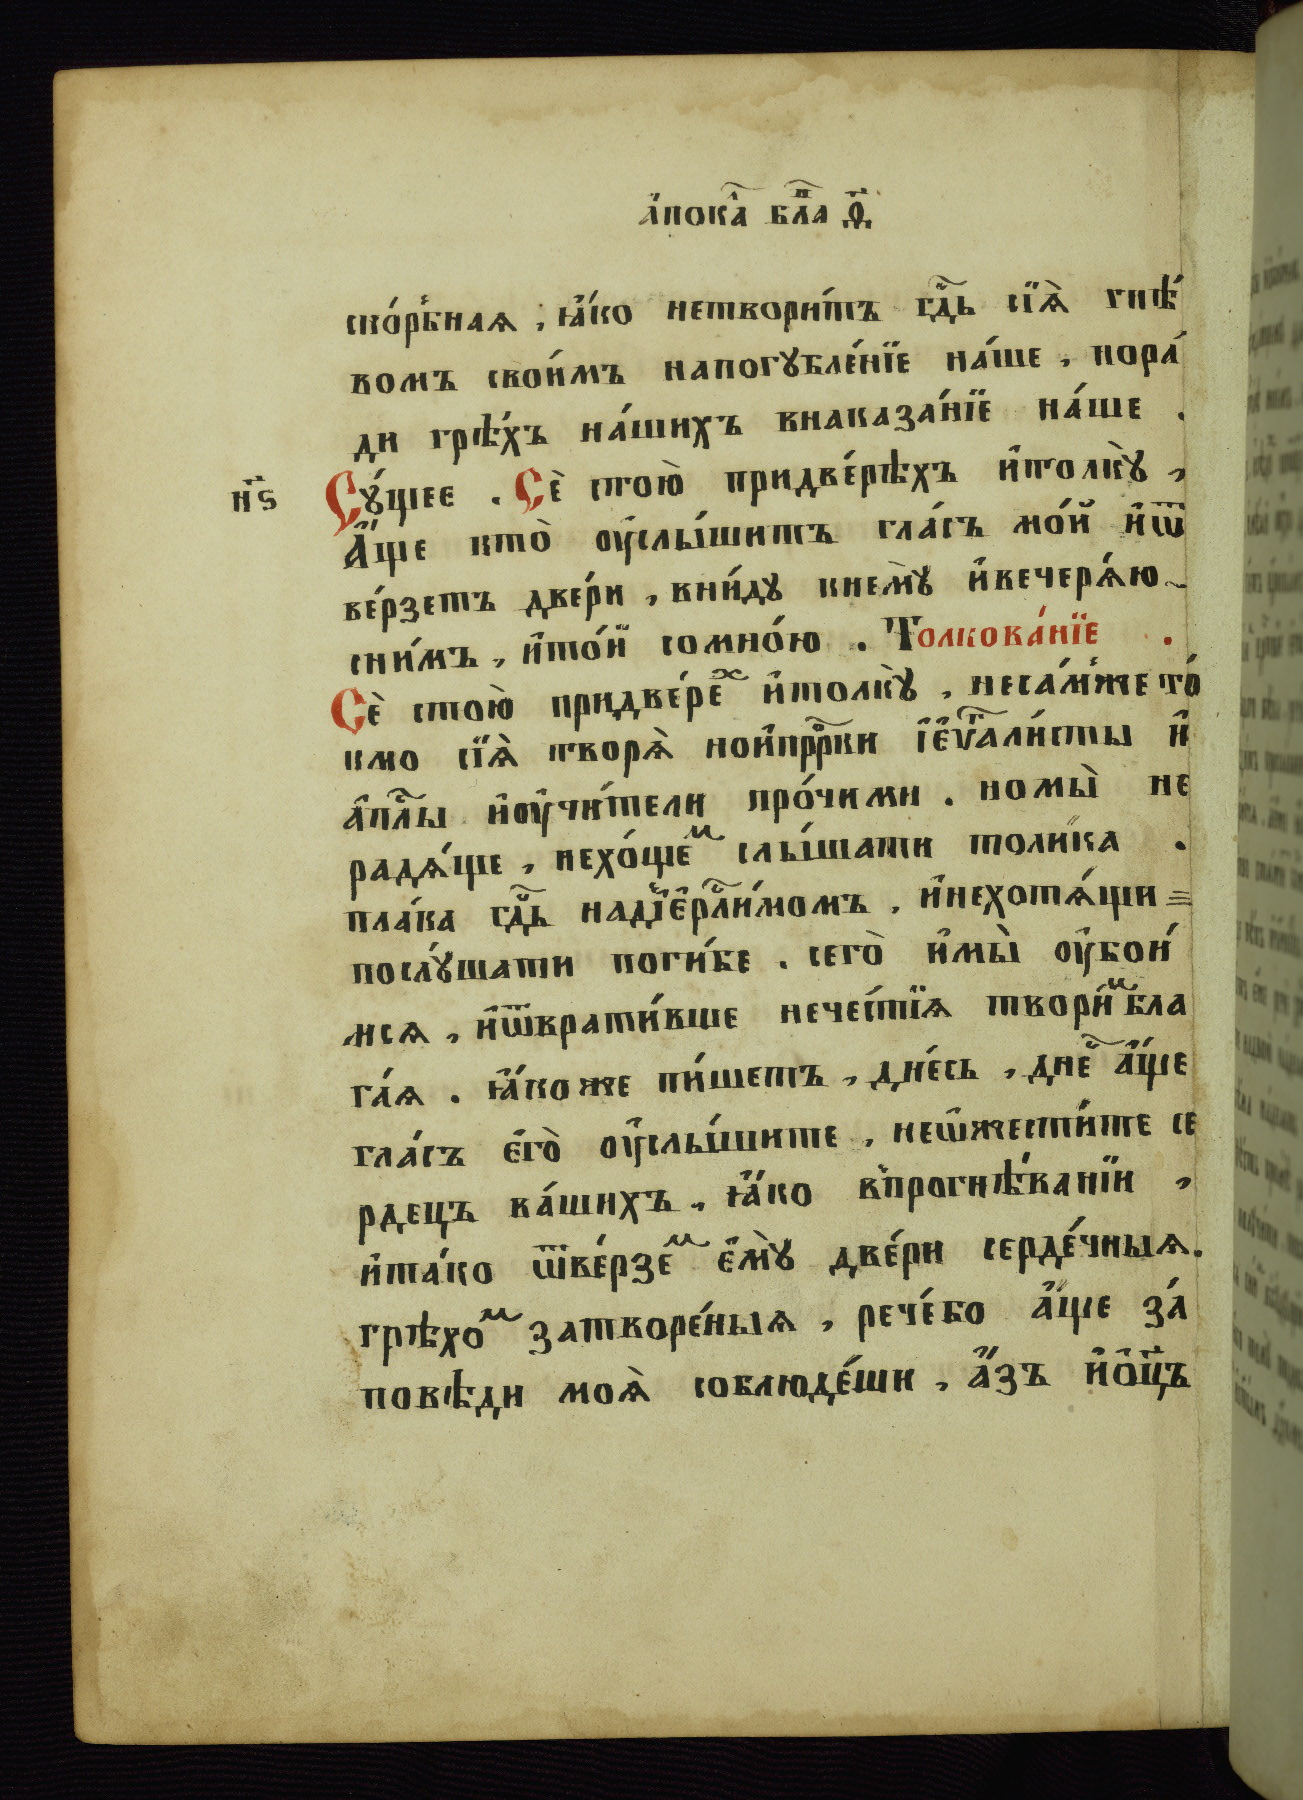 а҆пока́л҇ бл҃га ѳ҃
ско́рбнаѧ , ꙗ҆́ко нетвори́тъ гд҇ь сїѧ̀ гнѣ́
вомъ свои́мъ напогꙋбле́нїе на́ше , нора́
ди грѣ́хъ на́шихъ внаказа́нїе на́ше .
н҃ѕ Сꙋ́щее . Сѐ стою̀ придве́рѣхъ и҆толкꙋ̀ ,
А҆́ще кто̀ оу҆слы́шитъ гла́съ мо́й и҆ѿ
ве́рзетъ две́ри , вни́дꙋ кнемꙋ̀ и҆вечерѧ́ю
сни́мъ , и҆то́й сомно́ю . Толкова́нїе .
Сѐ стою̀ придве́реⷯ и҆толкꙋ̀ , неса́мже то́
кмо сїѧ̀ творѧ̀ нои҆прⷪ҇рки і҆е҆ѵⷢ҇али́сты и҆
а҆пⷭ҇лы и҆оу҆чи́тели про́чими . номы̀ не
радѧ́ще , нехо́щеⷨ слы́шати толика .
пла́ка гд҇ь надꙇ҆е҆рⷭ҇ли́момъ . и҆нехотѧ́щи
послꙋ́шати поги́бе . сего̀ и҆мы̀ оу҆бои́
мсѧ , и҆ѿврати́вше нечес́тїѧ твори́ⷨ бла
га́ѧ . ꙗ҆́коже пи́шетъ , дне́сь , дне́ а҆́ще
гла́съ е҆гѡ̀ оу҆слы́шите , неѡ҆жести́те се
рдецъ ва́шихъ . ꙗ҆́ко впрогнѣ́ванїи ,
и҆та́ко ѿве́рзеⷨ е҆мꙋ̀ две́ри серде́чныѧ .
грѣхоⷨ затворе́ныѧ , рече́бо а҆́ще за́
повѣди моѧ̀ соблюде́ши , а҆́зъ и҆ѻ҆ц҃ъ